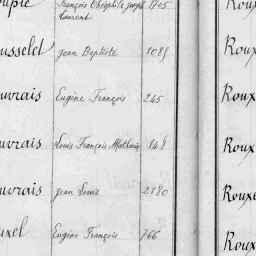 François Théophile Joseph 1705
Laurent
ousselet Jean Baptiste 1085 Roux
uvrais Eugène François 245 Roux
uvrais Louis François Mathurin 848 Roux
uvrais Jean Louis 2180 Rouxe
uxel Eugène François 766 Roux